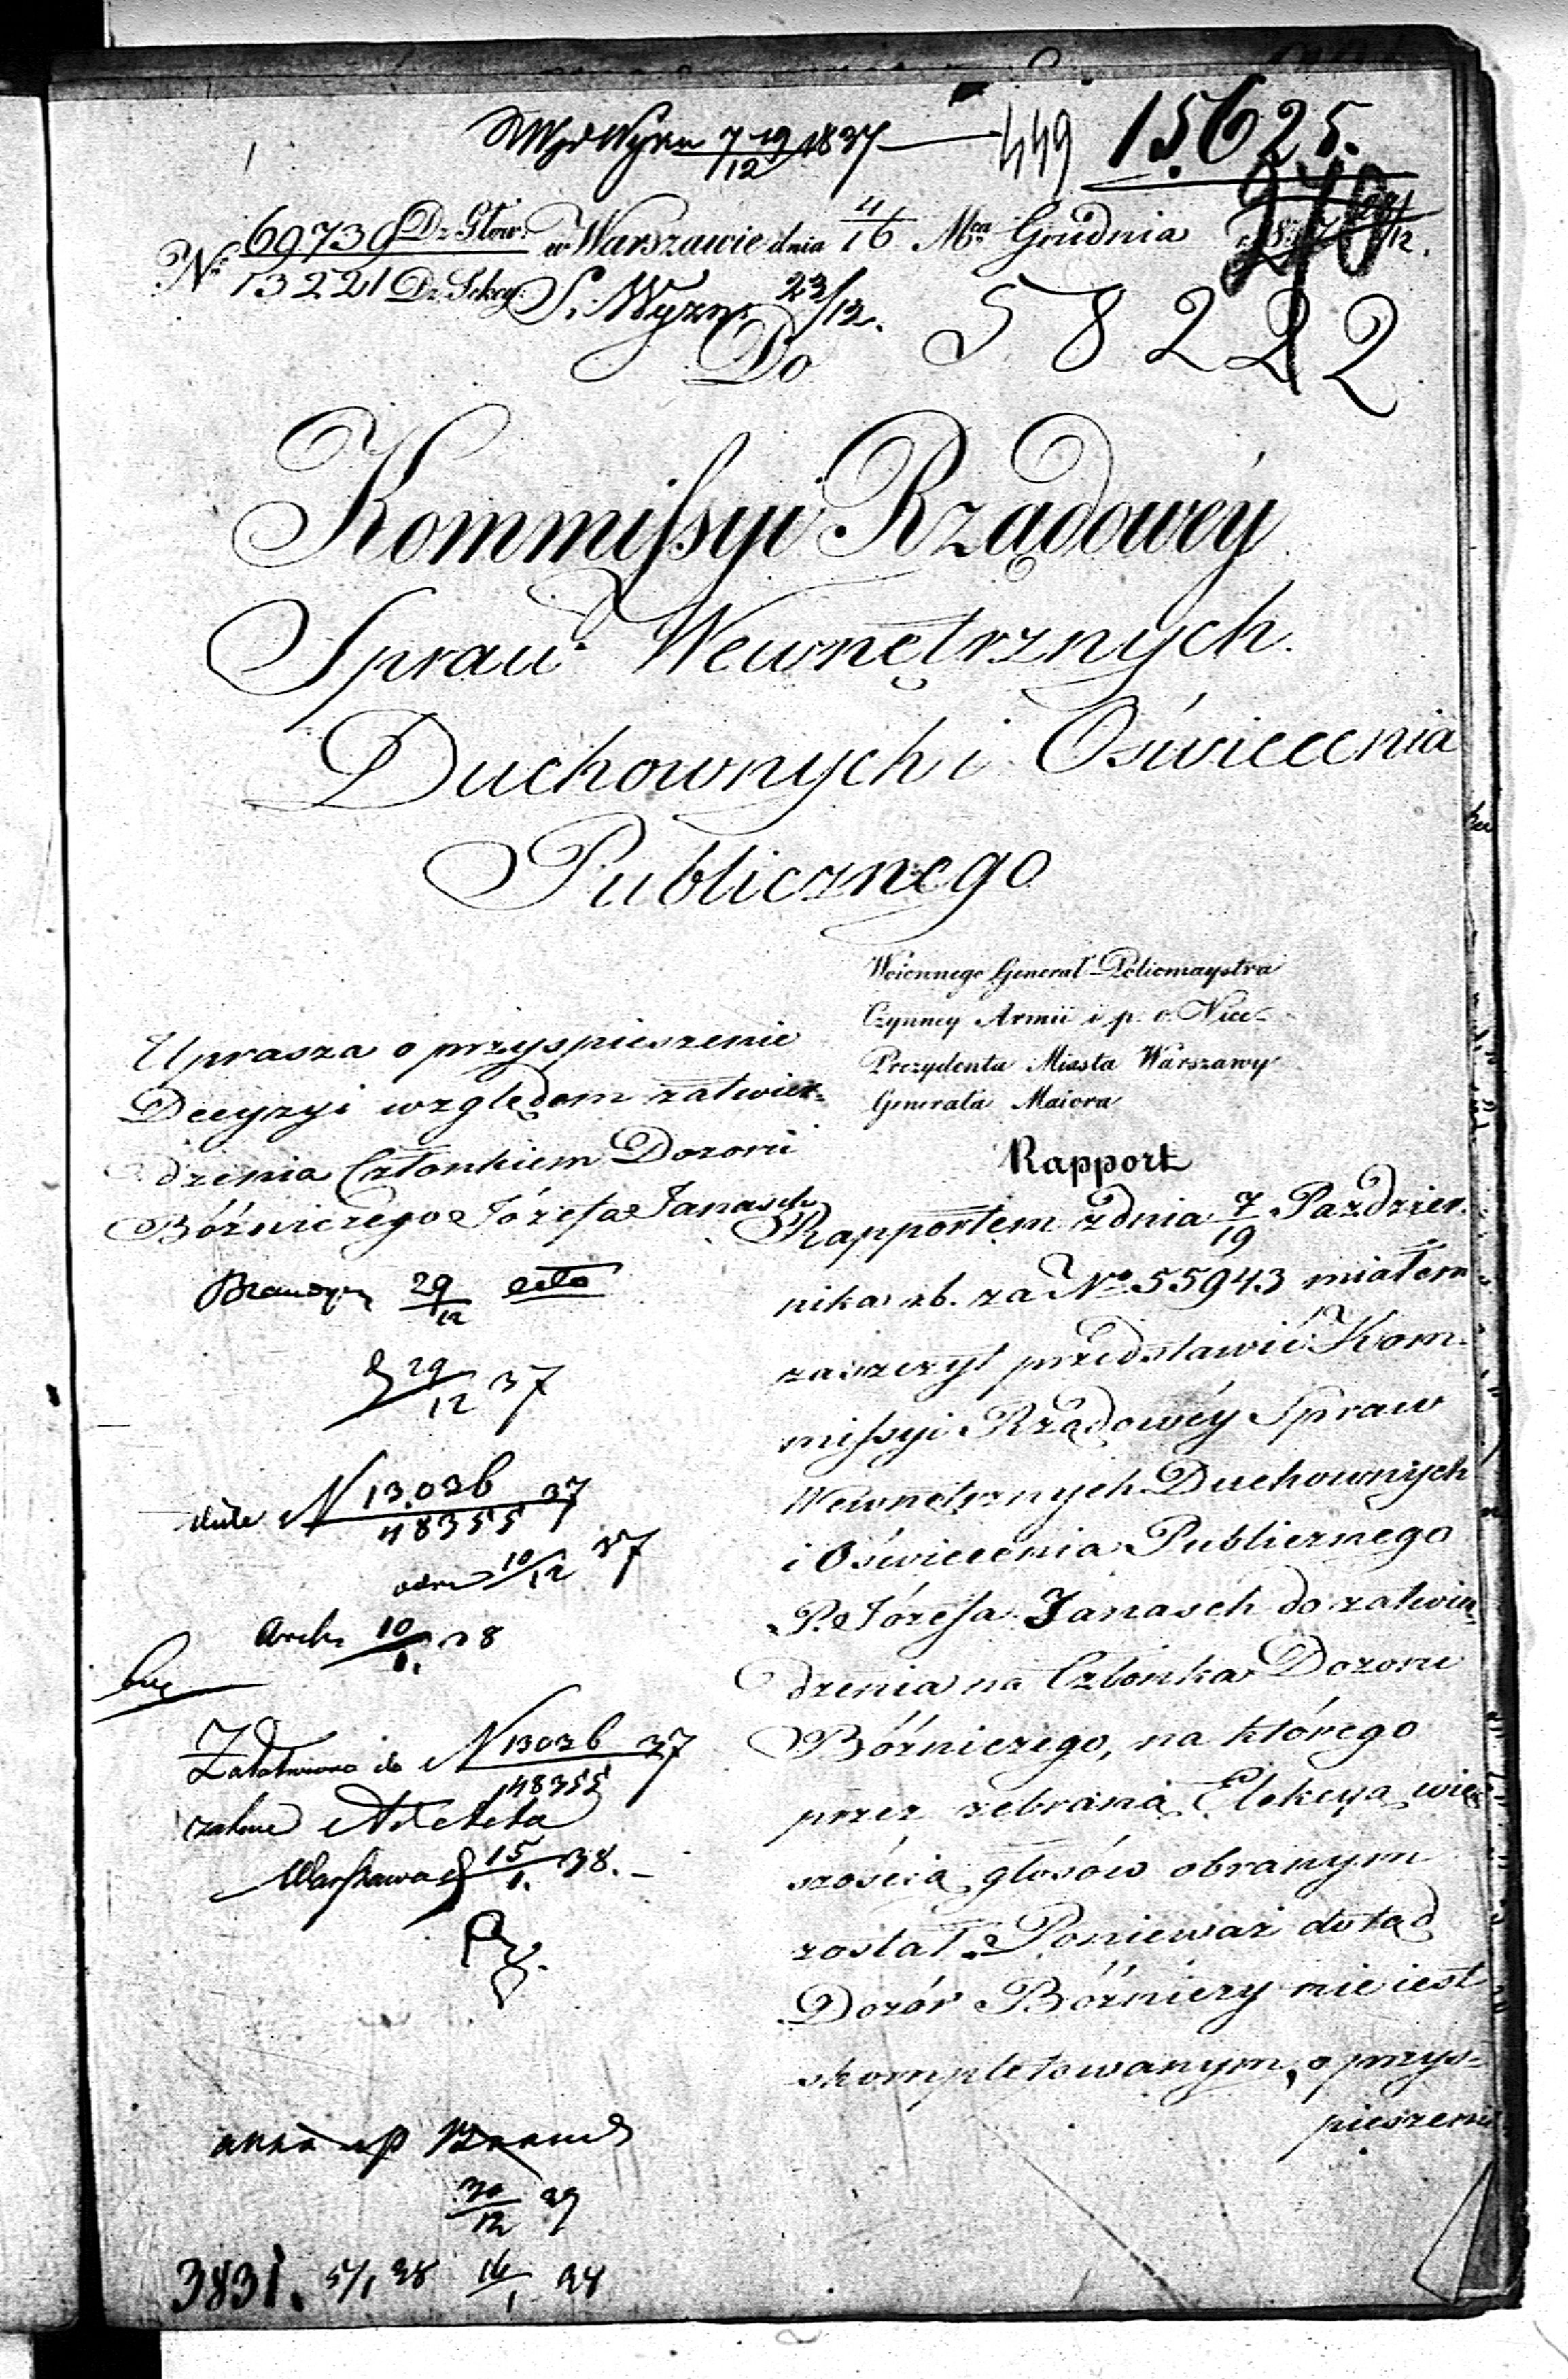 7/19 12 1837 — 449 15625.
240
No 69739 Dz. Głow: w Warszawie dnia 4/16 Mca Grudnia
13221 Dz. Sekcy: S. Wyzn. 23/12.
58222
Do
Kommissyi Rządowéy
Spraw Wewnętrznych
Duchownych i Oświecenia
Publicznego
Woiennego Generał-Policmaystra
Czynney Armii i p. o. Vice-
Prezydenta Miasta Warszawy
Generała Maiora
Rapport
Uprasza o przyspieszenie
Decyzyi względem zatwier-
dzenia Członkiem Dozoru
Bóżniczego Józefa Janasch
29/12
29/12 37
N 13036/48355 37
10/12 37
Arch. 10/1. 38
Załatwiono do N 13036/48355 37
Warszawa d 15/1. 38. -
30/12 37
3831. 5/1 38 16/1 38
Rapportem z dnia 7/19 Paździer-
nika rb. za No 55943 miałem
zaszczyt przedstawić Kom-
missyi Rządowéy Spraw
Wewnętrznych Duchownych
i Oświecenia Publicznego
P. Józefa Janasch do zatwier-
dzenia na Członka Dozoru
Bóżniczego, na którego
przez zebraną Elekcyą więk
szością głosów obranym
został. Ponieważ dotąd
Dozór Bóżniczy nie iest
skompletowanym, o przys-
pieszenie